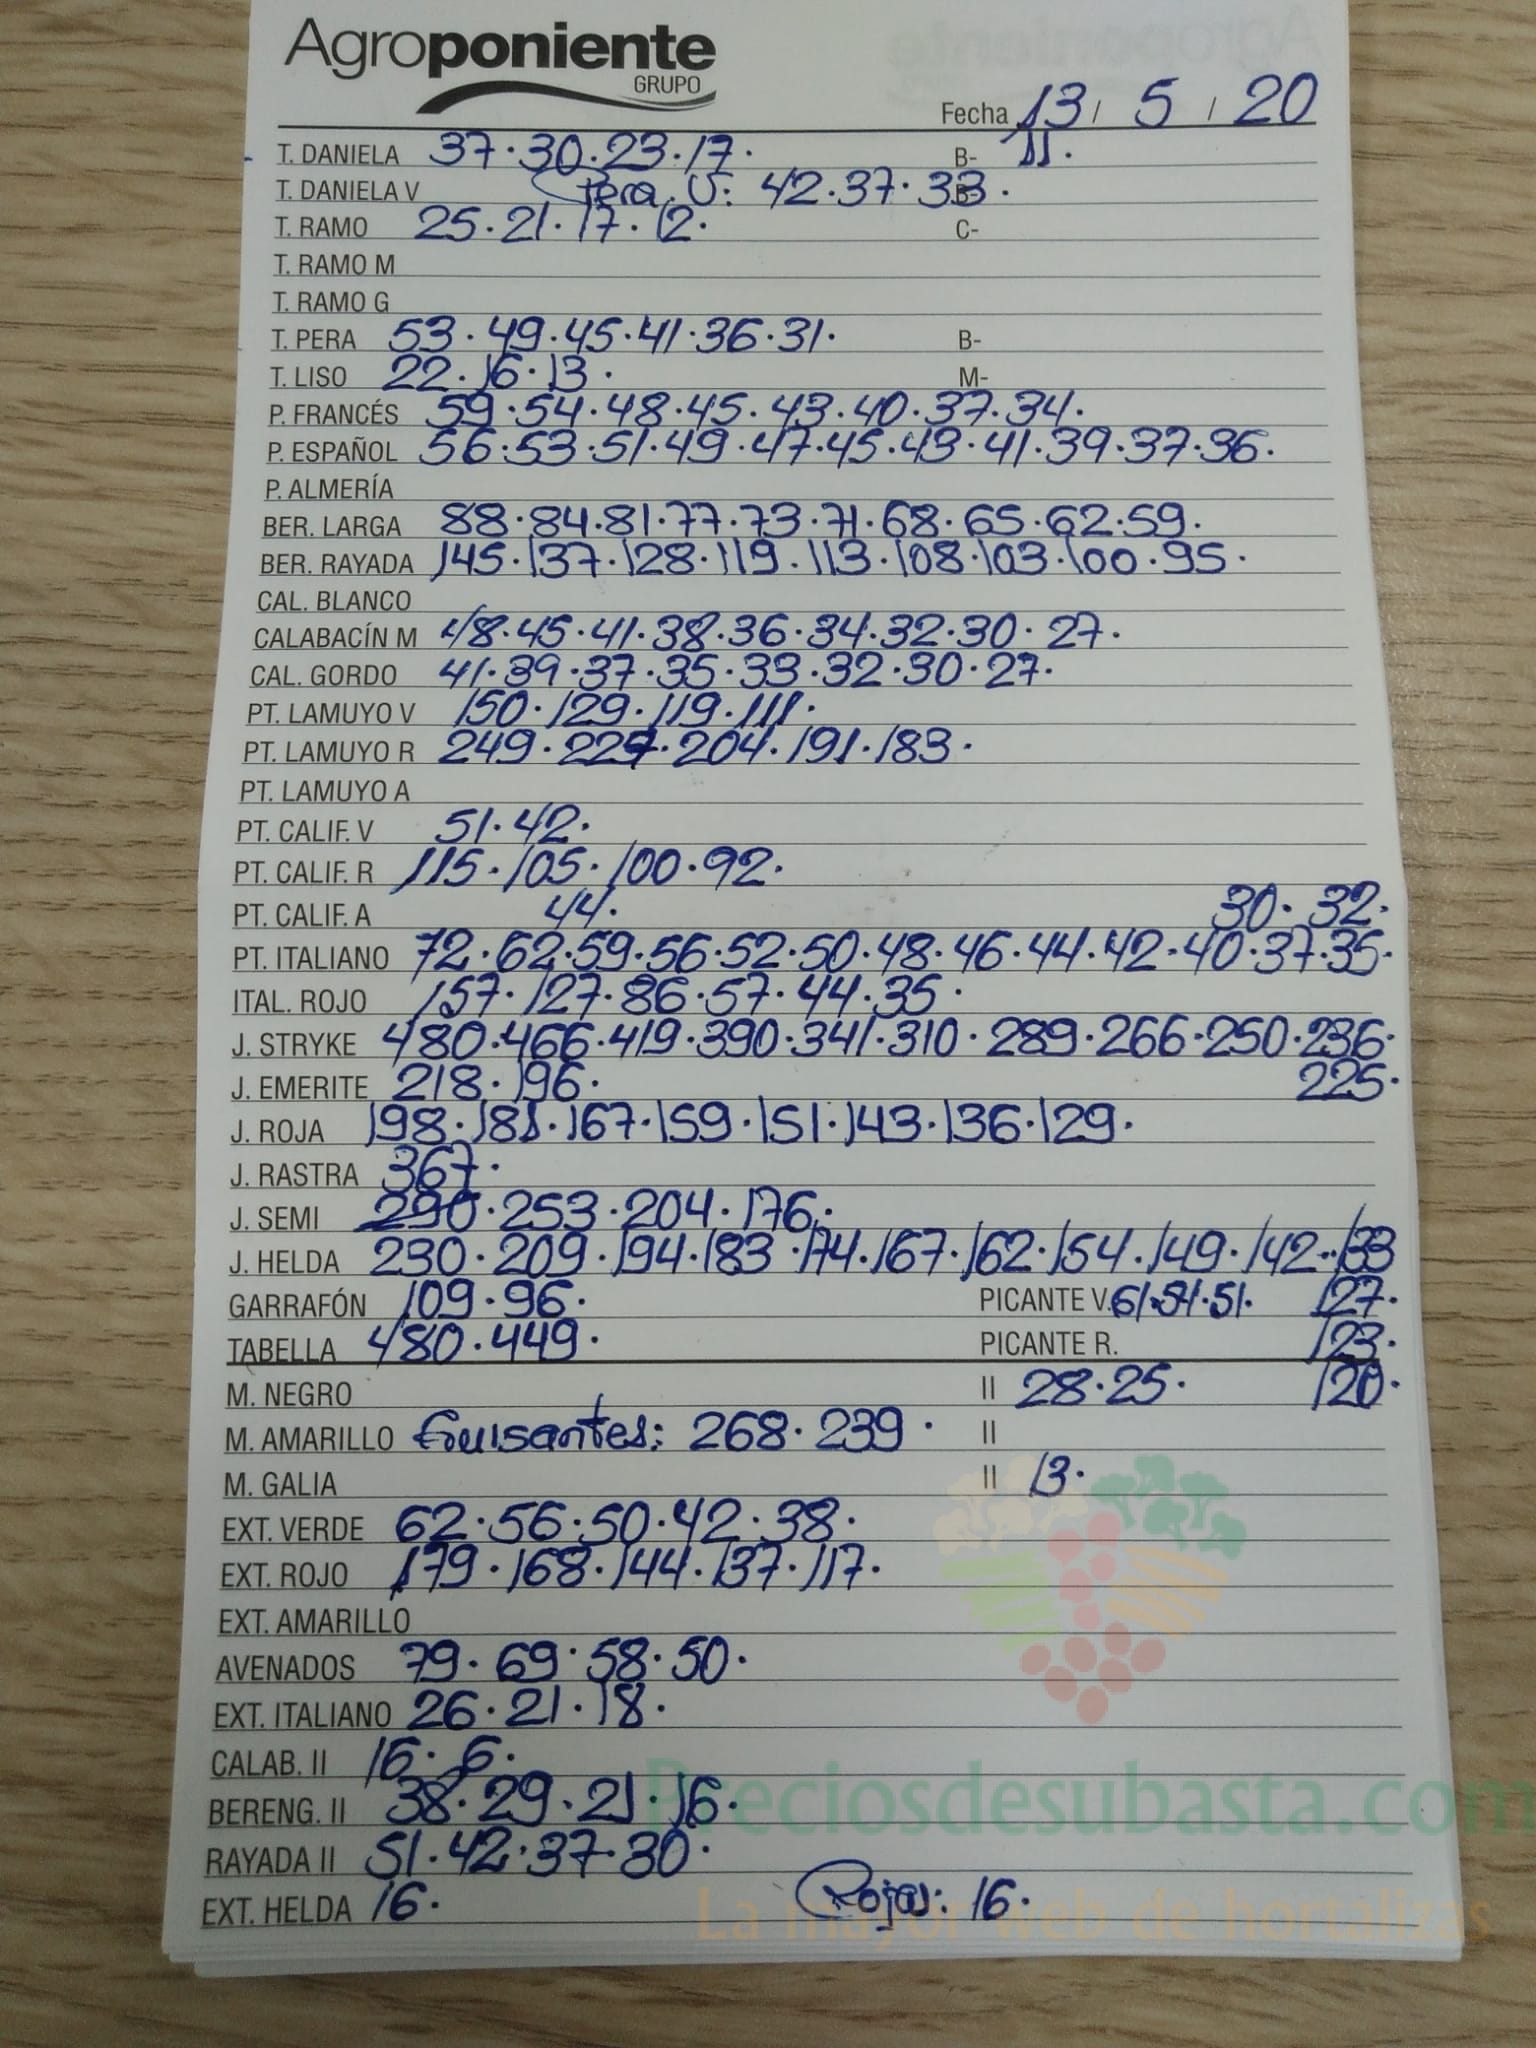 Agroponiente
GRUPO
Fecha 13 / 5 / 20
T. DANIELA 37·30·23·17· B- 11·
T. DANIELA V Pera V: 42·37·33· B-
T. RAMO 25·21·17·12· C-
T. RAMO M
T. RAMO G
T. PERA 53·49·45·41·36·31· B-
T. LISO 22·16·13· M-
P. FRANCÉS 59·54·48·45·43·40·37·34·
P. ESPAÑOL 56·53·51·49·47·45·43·41·39·37·36·
P. ALMERÍA
BER. LARGA 88·84·81·77·73·71·68·65·62·59·
BER. RAYADA 145·137·128·119·113·108·103·100·95·
CAL. BLANCO
CALABACÍN M 48·45·41·38·36·34·32·30·27·
CAL. GORDO 41·39·37·35·33·32·30·27·
PT. LAMUYO V 150·129·119·111·
PT. LAMUYO R 249·227·204·191·183·
PT. LAMUYO A
PT. CALIF. V 51·42·
PT. CALIF. R 115·105·100·92·
PT. CALIF. A 44· 30· 32·
PT. ITALIANO 72·62·59·56·52·50·48·46·44·42·40·37·35·
ITAL. ROJO 157·127·86·57·44·35·
J. STRYKE 480·466·419·390·341·310·289·266·250·236·
J. EMERITE 218·196· 225·
J. ROJA 198·181·167·159·151·143·136·129·
J. RASTRA 367·
J. SEMI 290·253·204·176·
J. HELDA 230·209·194·183·174·167·162·154·149·142·133
GARRAFÓN 109·96· PICANTE V. 61·51· 127·
TABELLA 480·449· PICANTE R. 123·
M. NEGRO II 28·25· 120·
M. AMARILLO Guisantes: 268·239· II
M. GALIA II 13·
EXT. VERDE 62·56·50·42·38·
EXT. ROJO 179·168·144·137·117·
EXT. AMARILLO
AVENADOS 79·69·58·50·
EXT. ITALIANO 26·21·18·
CALAB. II 16·6·
BERENG. II 38·29·21·16·
Preciosdesubasta.com
RAYADA II 51·42·37·30·
EXT. HELDA 16· Rojas: 16·
La mayor web de hortalizas